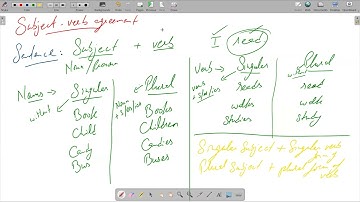 Subject-verb agreement
Sentence: Subject + verb
Noun/Pronoun
I read
Nouns → Singular Plural
without
Noun + s/es/ies
Book Books
Child Children
Candy Candies
Bus Buses
Verb → Singular Plural
verb + s/es/ies
without
reads read
studies study
Singular Subject + Singular verb form
Plural Subject + plural form of verb